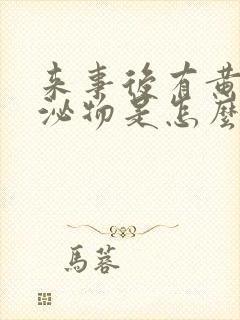 来事後有黄
泌物是怎麼
馬蓉